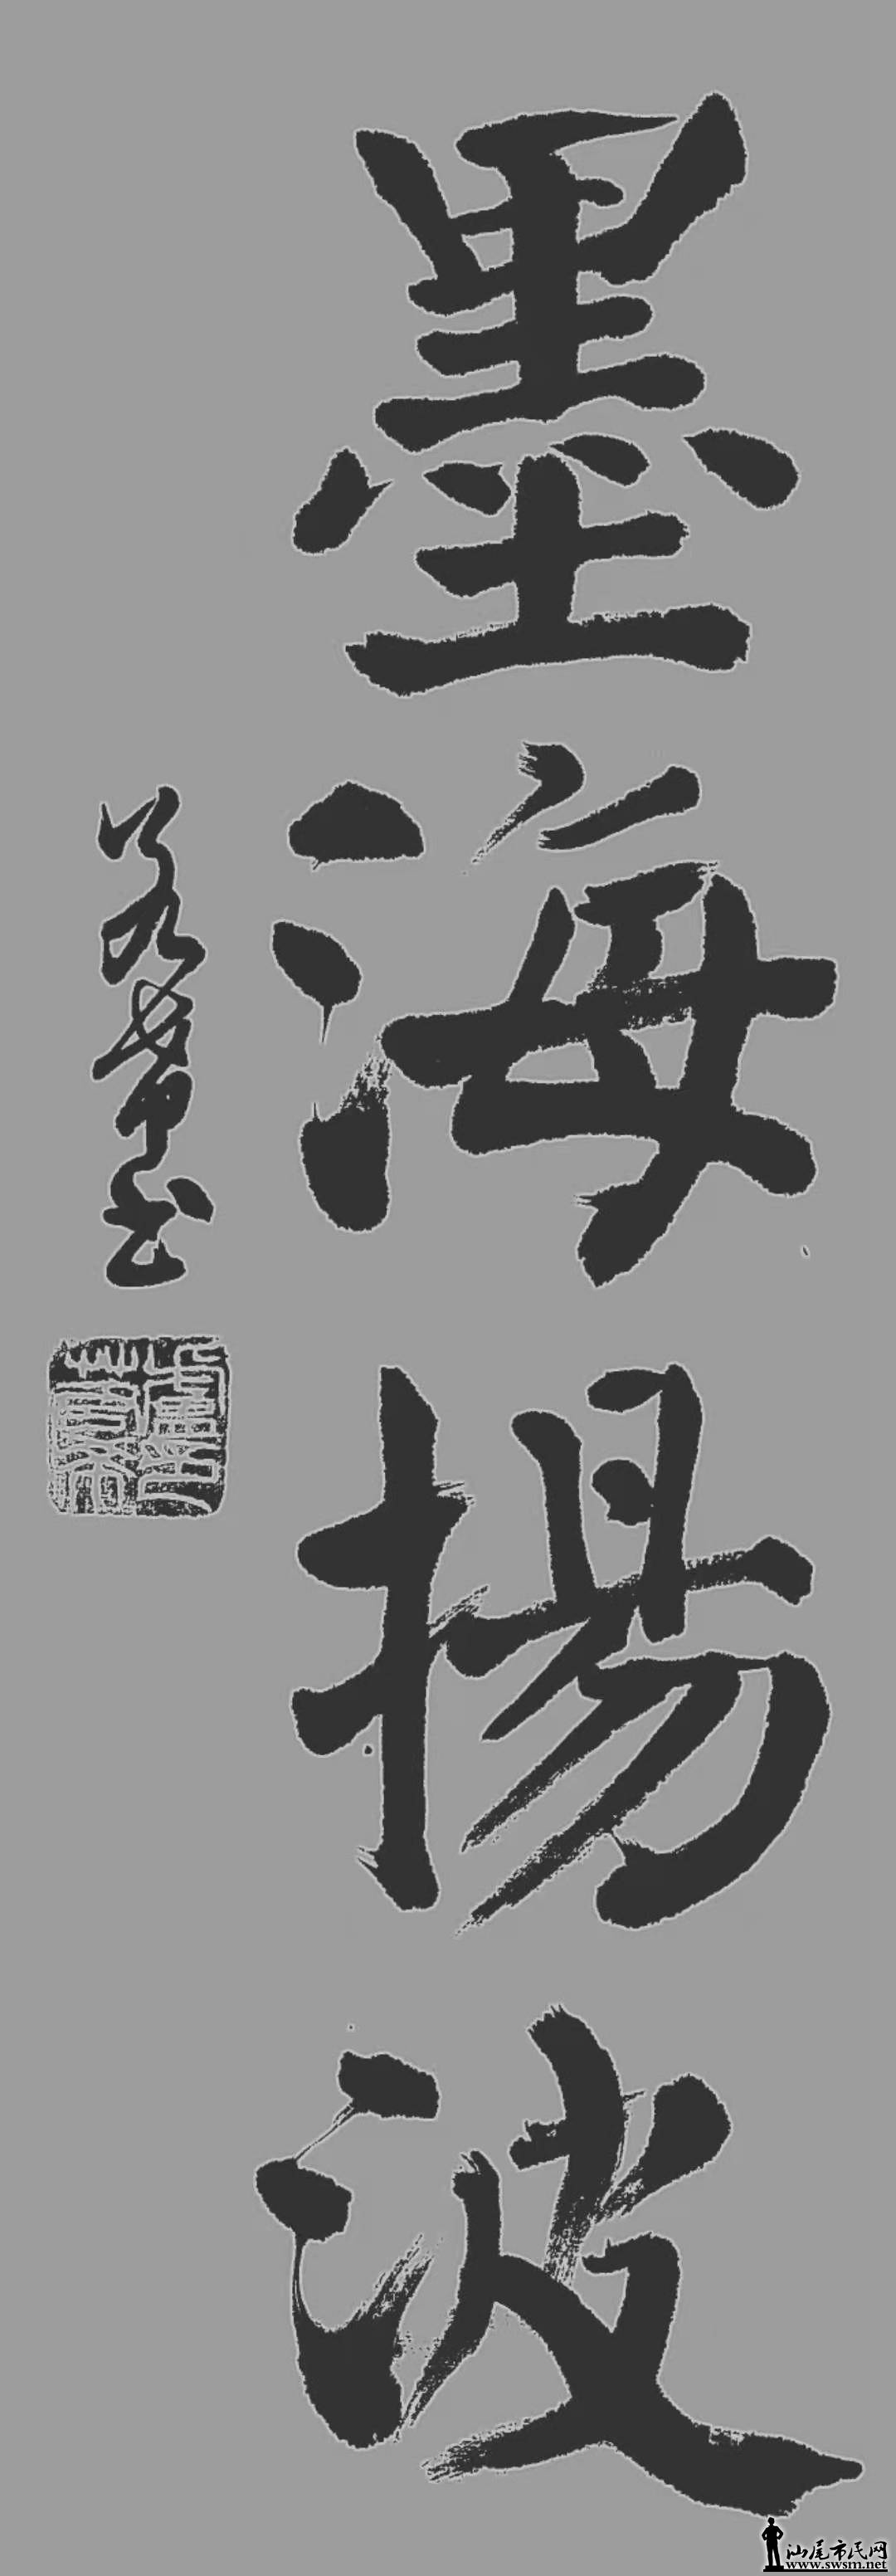 墨海揚波
汕尾市民网
www.swsm.net